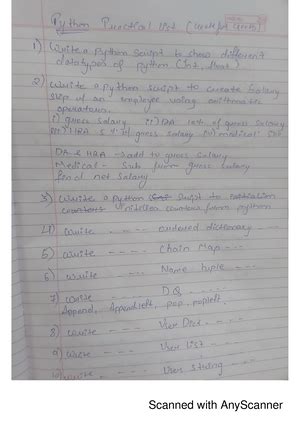 Python Practical list
1) Write a python script to show different
datatypes of python (Int, float)
2) Write a python script to create salary
slip of an employee using arithmetic
operators.
i) guess salary ii) DA 10% of guess salary
iii) HRA of guess salary iv) medical
DA & HRA - add to guess salary
Medical - Sub from guess salary
find net salary
3) Write a python script to
counters from python
4) Write - - - ordered dictionary - - -
5) Write - - - Chain Map - - -
6) Write - - - Name tuple - - -
7) Write - - - DQ - - -
Append, Appendleft, pop, popleft.
8) Write - - - User Dict - - -
9) Write - - - User list - - -
10) Write - - - User string - - -
Scanned with AnyScanner